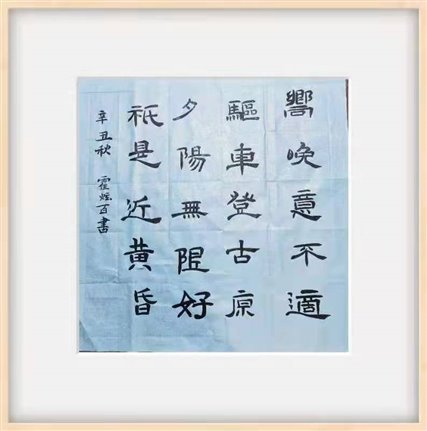 嚮晚意不適
驅車登古原
夕陽無限好
祇是近黄昏
辛丑秋 霍煌百書